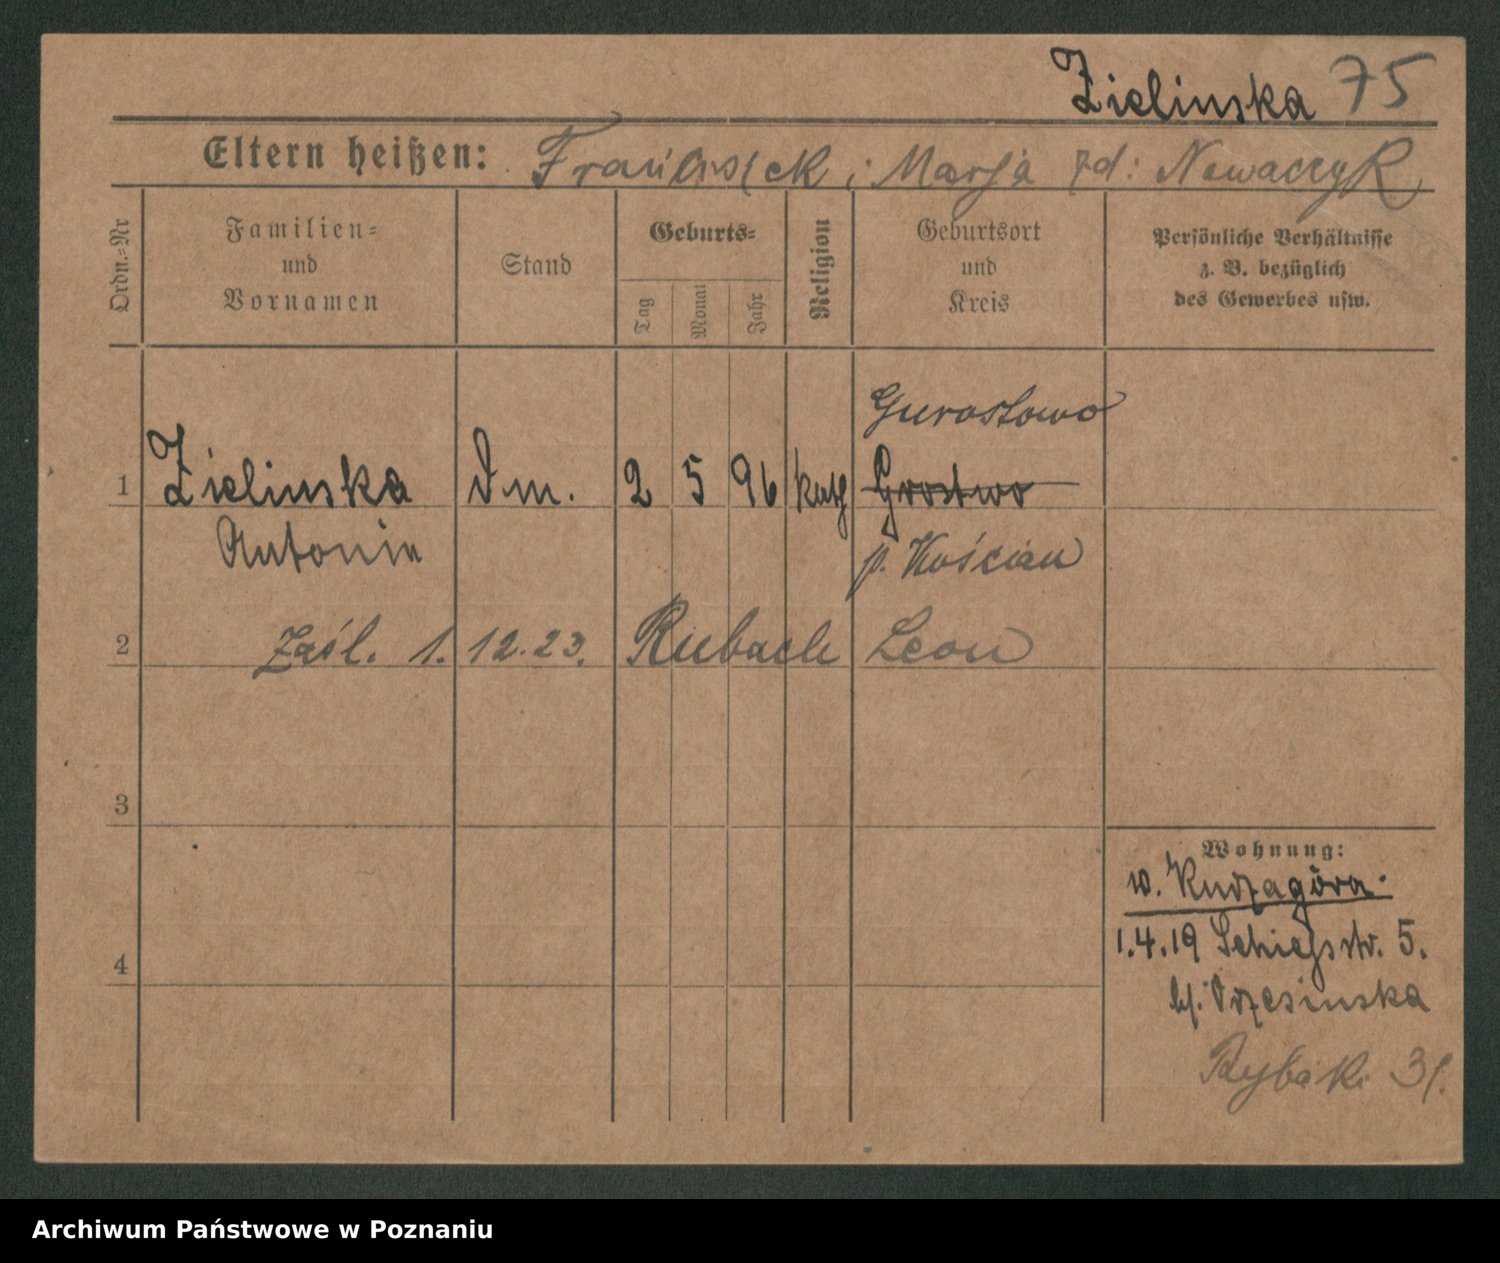 Zielinska 75
Eltern heißen: Franciszek i Marja zd: Nowaczyk
Ordn.-Nr
Familien-
und
Vornamen
Stand
Geburts-
Tag
Monat
Jahr
Religion
Geburtsort
und
Kreis
Persönliche Verhältnisse
z. B. bezüglich
des Gewerbes usw.
Gurostowo
1 Zielinska Dm. 2 5 96 kath Grostwo
Antonie
p. Kościan
2 Zaśl. 1.12.23. Rubach Leon
3
Wohnung:
w. Rudzagóra
1.4.19 Schießstr. 5.
4
bei Orzesinska
Rybaki 31.
Archiwum Państwowe w Poznaniu